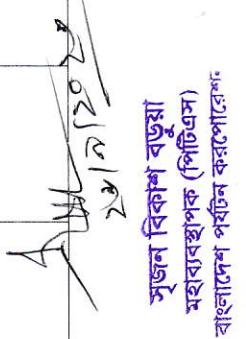 সৃজন বিকাশ বড়ুয়া
মহাব্যবস্থাপক (পিটিএস)
বাংলাদেশ পর্যটন করপোরেশন